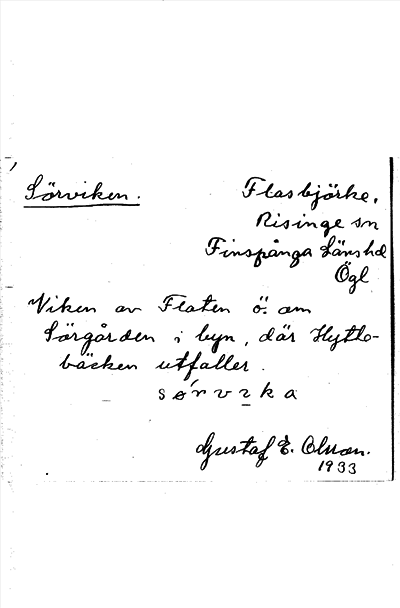 Sörviken.
Flasbjörke,
Risinge sn
Finspånga Länshd
Ögl
Viken av Flaten ö. om
Sörgården i byn, där Hytto-
bäcken utfaller.
Gustaf E.
1933